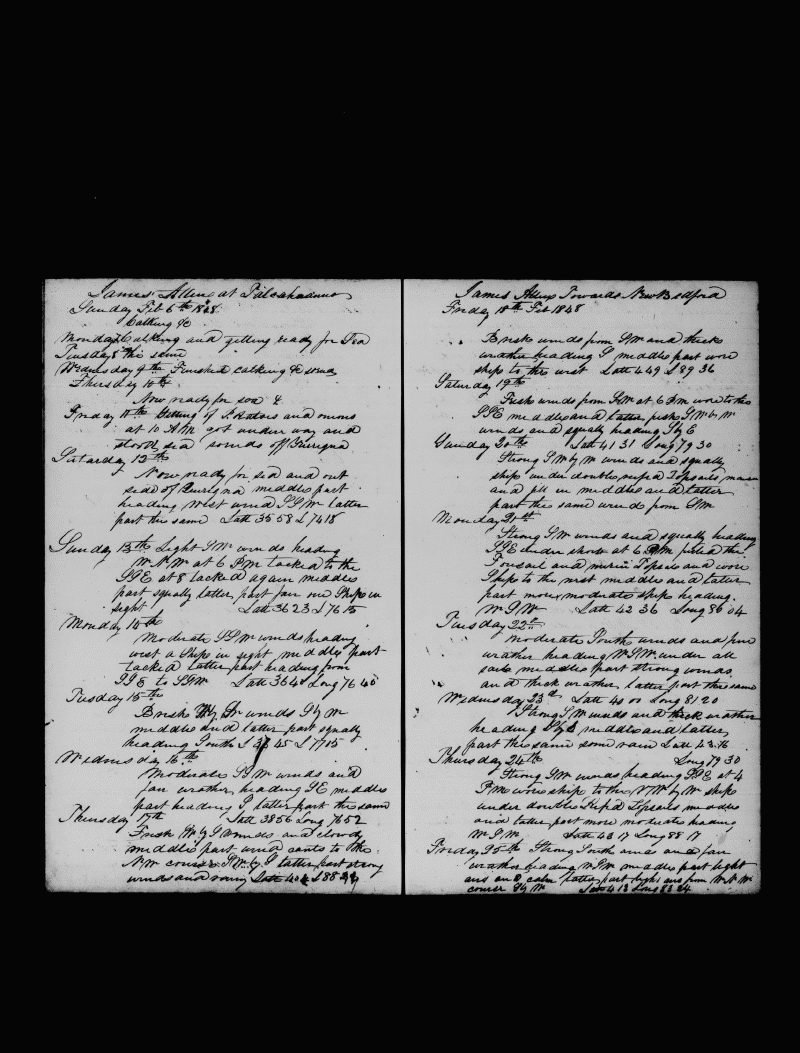 James Allen at Talcahuano
Sunday Feb 6th 1848
Calking &c
Monday 7 Calking and getting ready for Sea
Tuesday 8th the same
Wednesday 9th Finished calking &
Thursday 10th
Now ready for sea &
Friday 11th Getting of Potatoes and onions
at 10 AM got under way and
stood sea
Saturday 12th
Now ready for sea and out
side of middle part
heading west wind SSW latter
part the same Latt 35 58 L 74 18
Sunday 13th Light SW winds heading
WNW at 6 PM tacked to the
SSE at 8 tacked again middle
part squally latter part fair one Ship in
sight Latt 36 23 L 76 15
Monday 14th
Moderate SSW winds heading
west a Ship in sight middle part
tacked latter part heading from
SSE to SSW Latt 36 4 Long 76 40
Tuesday 15th
Brisk W by S winds S by W
middle and latter part squally
heading South L 37 45 L 77 15
Wednesday 16th
Moderate SSW winds and
fair weather heading SE middle
part heading S latter part the same
Thursday 17th Latt 38 56 Long 76 52
Fresh W by S winds and cloudy
middle part wind cants to the
NW course SW by S latter part strong
winds and rainy Latt 40 4 L 88
James Allen Towards New Bedford
Friday 18th Feb 1848
Brisk winds from SW and thick
weather heading S middle part wore
ship to the west Latt 44 9 L 89 36
Saturday 19th
Fresh winds from SW at 6 PM wore to the
SSE middle and latter fresh SW by W
winds and squally heading S by E
Sunday 20th Latt 41 31 Long 79 30
Strong SW by W winds and squally
ship under double reefed Topsails
and in middle and latter
part the same wind from SW
Monday 21st
Strong SW winds and squally heading
SSE under short at 6 PM furled the
Foursail and mizen Topsail and wore
Ship to the west middle and latter
part more moderate ship heading
WSW Latt 42 36 Long 86 04
Tuesday 22nd
Moderate South winds and fine
weather heading WSW under all
sails middle part strong winds
and thick weather latter part the same
Wednesday 23d Latt 40 00 Long 81 20
Strong SW winds and thick weather
heading S by E middle and latter
part the same some rain Latt 43 16
Thursday 24th Long 79 30
Strong SW winds heading SSE at 4
PM wore ship to the NW by W ship
under double Reefd Topsails middle
and latter part more moderate heading
WSW Latt 43 17 Long 88 17
Friday 25th Strong South winds and fair
weather heading WSW middle part light
airs and calm latter part light airs from WNW
course S by W Latt 4 13 Long 83 24